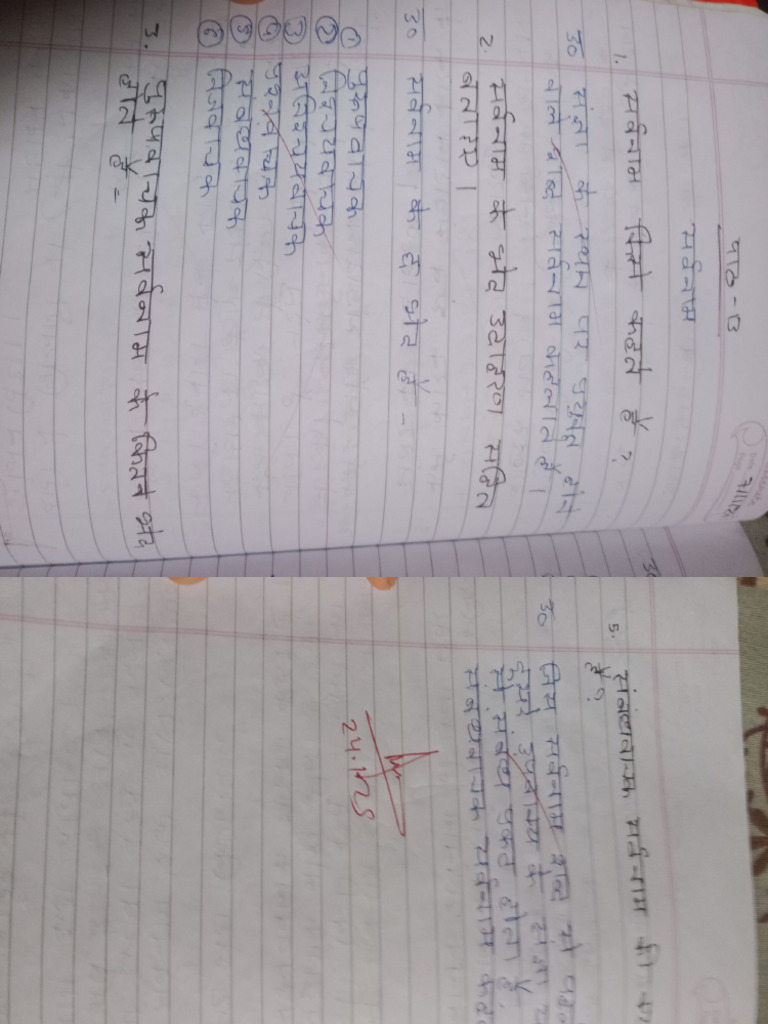 पाठ-8
सर्वनाम
1. सर्वनाम किसे कहते हैं ?
उ० संज्ञा के स्थान पर प्रयुक्त होने
वाले शब्द सर्वनाम कहलाते हैं।
2. सर्वनाम के भेद उदाहरण सहित
बताइए।
उ० सर्वनाम के छः भेद हैं -
① पुरुषवाचक
② निश्चयवाचक
③ अनिश्चयवाचक
④ प्रश्नवाचक
⑤ संबंधवाचक
⑥ निजवाचक
3. पुरुषवाचक सर्वनाम के कितने भेद
होते हैं -
5. संबंधवाचक सर्वनाम की
है?
उ० जिस सर्वनाम शब्द से पहले
दूसरे उपवाक्य के संज्ञा
से संबंध प्रकट होता है
संबंधवाचक सर्वनाम
24.1.25